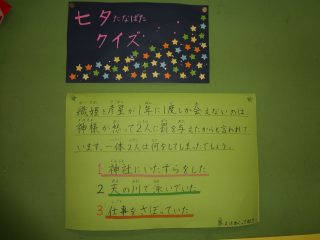 七夕たなばた
クイズ
織姫と彦星が1年に1度しか会えないのは
神様が怒って2人に罰を与えたからと言われて
います。一体2人は何をしてしまったでしょう。
1 神社にいたずらをした
2 天の川で泳いでいた
3 仕事をさぼっていた